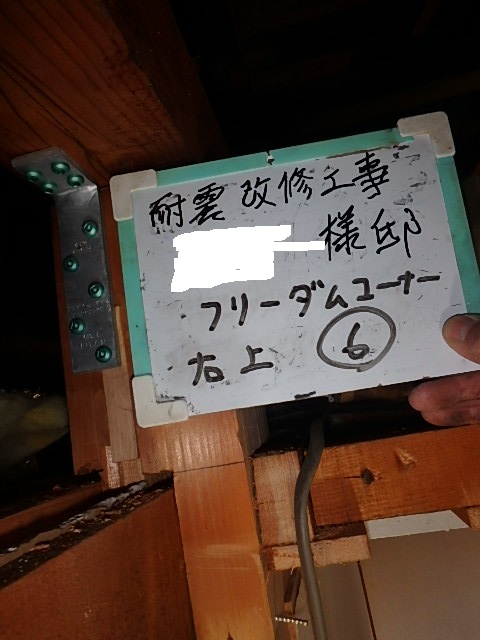 耐震改修工事
様邸
フリーダムコーナー
右上 ⑥